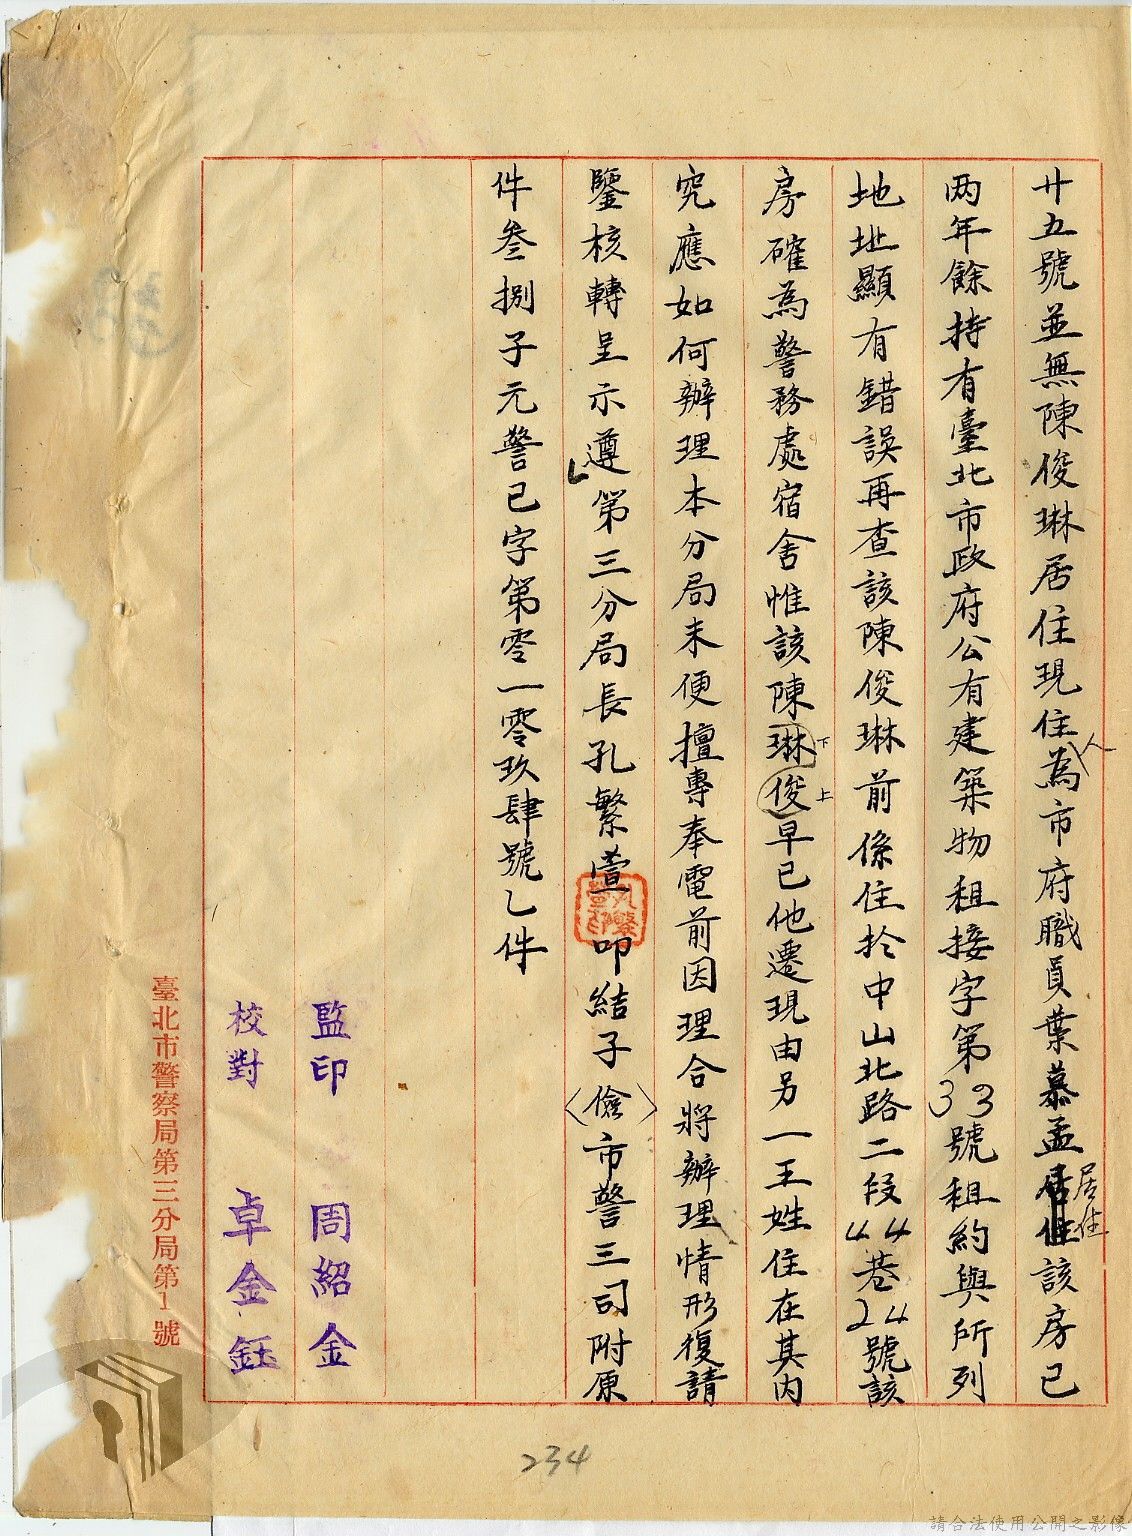 廿五號並無陳俊琳居住現住人為市府職員葉慕孟居住該房已
两年餘持有臺北市政府公有建築物租接字第33號租約與所列
地址顯有錯誤再查該陳俊琳前係住於中山北路二段44巷24號該
房確為警務處宿舍惟該陳琳下俊上早已他遷現由另一王姓住在其内
究應如何辦理本分局未便擅專奉電前因理合將辦理情形復請
鑒核轉呈示遵第三分局長孔繁萱叩結子儉市警三司附原
件叁捌子元警已字第零一零玖肆號乙件
監印 周紹金
校對 卓金鈺
臺北市警察局第三分局第1號
234
請合法使用公開之影像